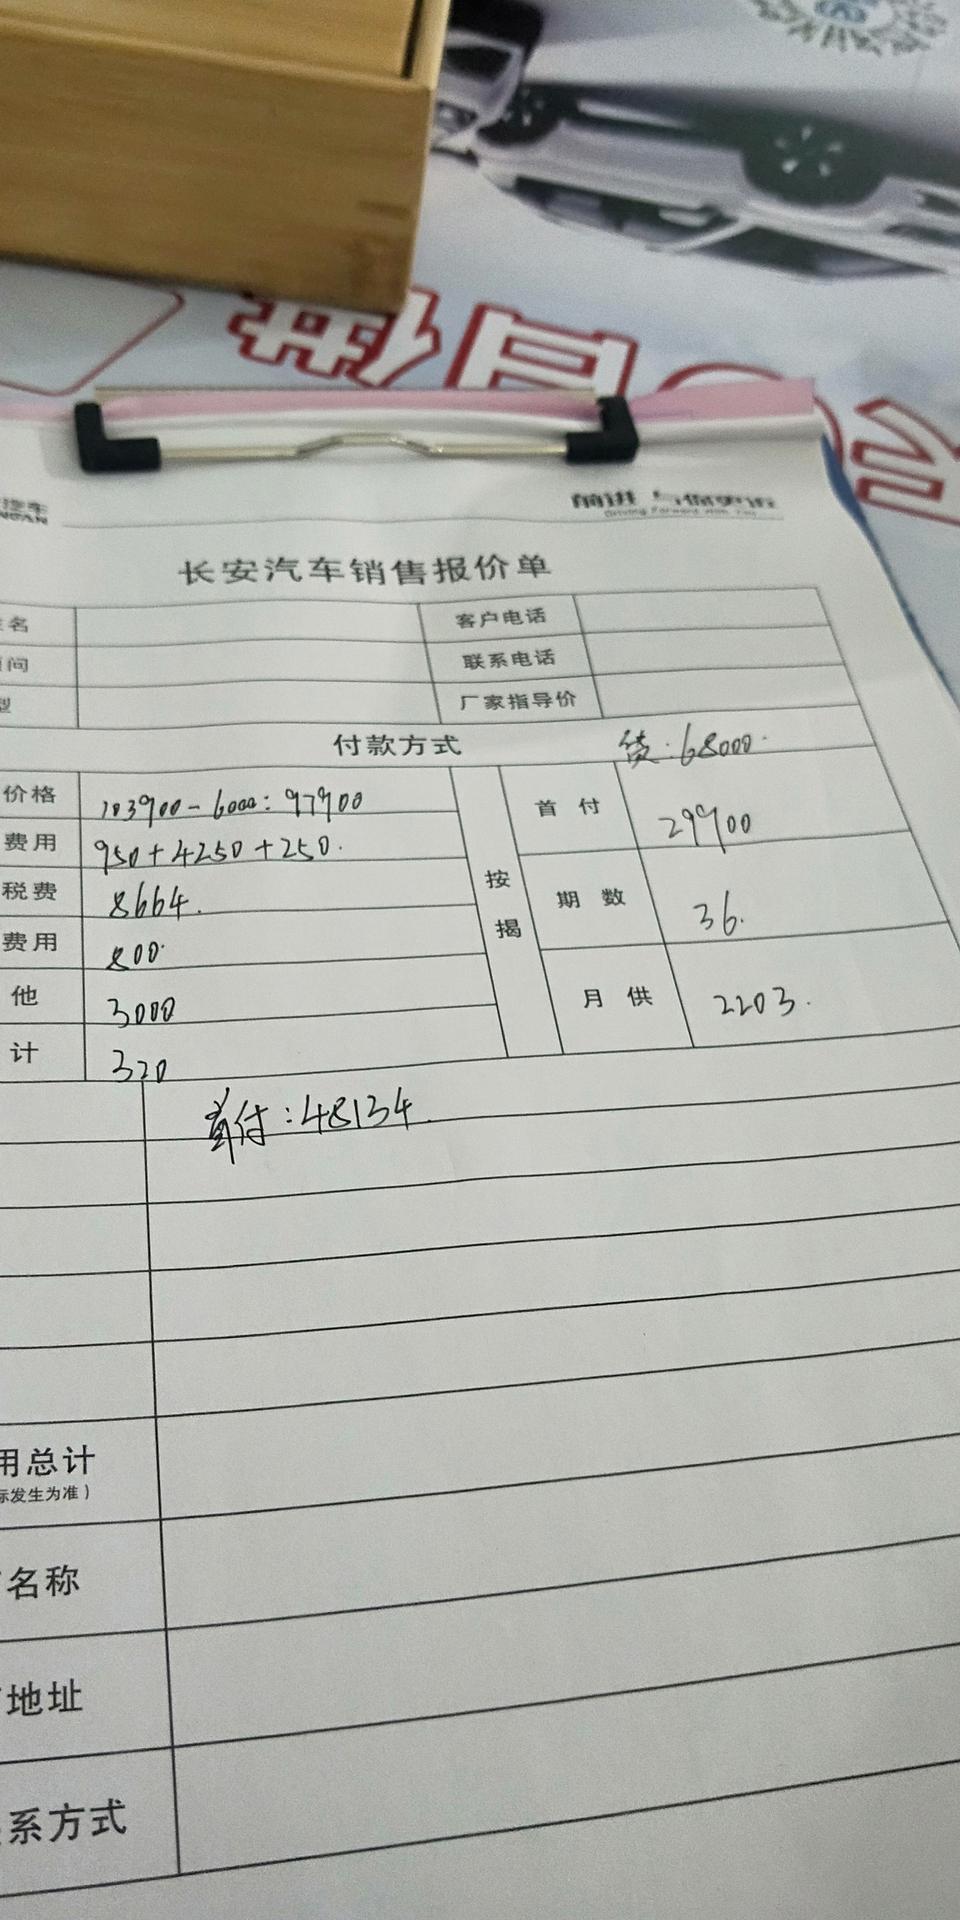 汽车
NGAN
前进 与你更近
Driving Forward With You
长安汽车销售报价单
名 客户电话
问 联系电话
型 厂家指导价
付款方式 贷:68000.
价格 103900-6000:97900
费用 950+4250+250.
税费 8664.
费用 800.
他 3000
计 320
按揭
首付 29900
期数 36.
月供 2203.
首付:48134.
用总计
际发生为准)
名称
地址
系方式